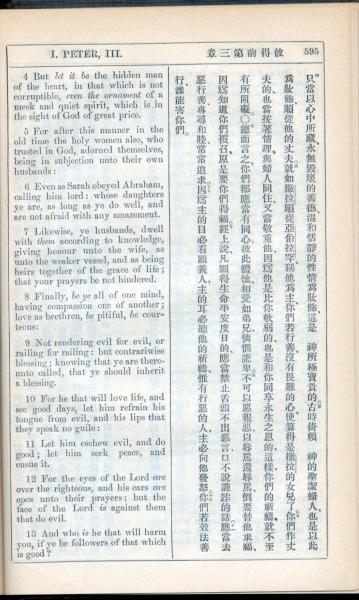 I. PETER, III.
彼得前第三章
595
4 But let it be the hidden man
of the heart, in that which is not
corruptible, even the ornament of a
meek and quiet spirit, which is in
the sight of God of great price.
5 For after this manner in the
old time the holy women also, who
trusted in God, adorned themselves,
being in subjection unto their own
husbands:
6 Even as Sarah obeyed Abraham,
calling him lord: whose daughters
ye are, as long as ye do well, and
are not afraid with any amazement.
7 Likewise, ye husbands, dwell
with them according to knowledge,
giving honour unto the wife, as
unto the weaker vessel, and as being
heirs together of the grace of life;
that your prayers be not hindered.
8 Finally, be ye all of one mind,
having compassion one of another;
love as brethren, be pitiful, be cour-
teous:
9 Not rendering evil for evil, or
railing for railing: but contrariwise
blessing; knowing that ye are there-
unto called, that ye should inherit
a blessing.
10 For he that will love life, and
see good days, let him refrain his
tongue from evil, and his lips that
they speak no guile:
11 Let him eschew evil, and do
good; let him seek peace, and
ensue it.
12 For the eyes of the Lord are
over the righteous, and his ears are
open unto their prayers: but the
face of the Lord is against them
that do evil.
13 And who is he that will harm
you, if ye be followers of that which
is good?
只當以心中所藏永無毀壞的善德溫和恬靜的性情爲妝飾這是 神所極寶貴的古時倚賴 神的聖潔婦人也是以此
爲妝飾順從他的丈夫就如撒拉順從亞伯拉罕稱他爲主你們若行善沒有畏難的心便算得是撒拉的女兒了你們作丈
夫的也當按著情理與婦人同住又當敬重他因爲他是比你軟弱的也是和你同享永生之恩的這樣你們的祈禱就不至
有所阻礙○總而言之你們都應當有同心彼此體恤和愛如弟兄憐憫謙卑不可以惡報惡以辱罵還辱罵倒要替他求福
因爲知道你們被召原是要你們得福經上說凡願得生命享安度日的應當禁止舌頭不出惡言口不說詭詐的話應當去
惡行善專尋和睦常常追求因爲主的目必看顧義人主的耳必聽他的祈禱惟有行惡的人主必向他發怒你們若效法善
行誰能害你們。